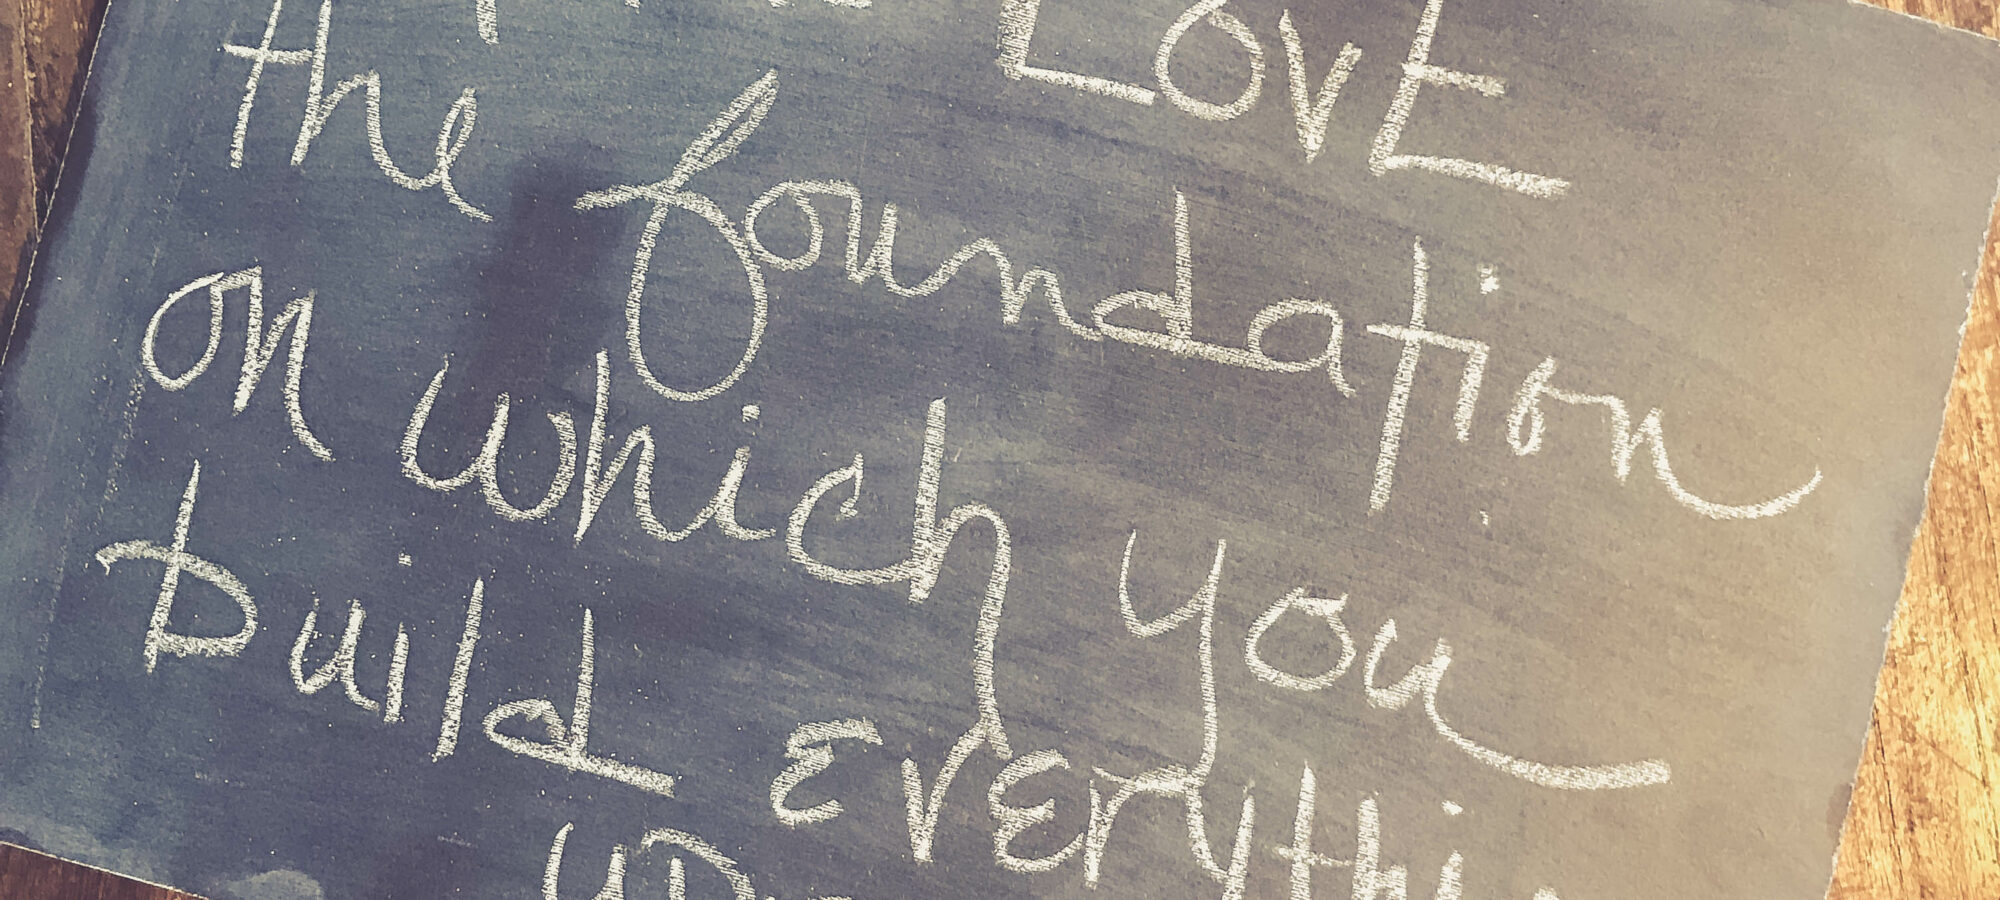 LOVE
the foundation
on which you
build everythi
up